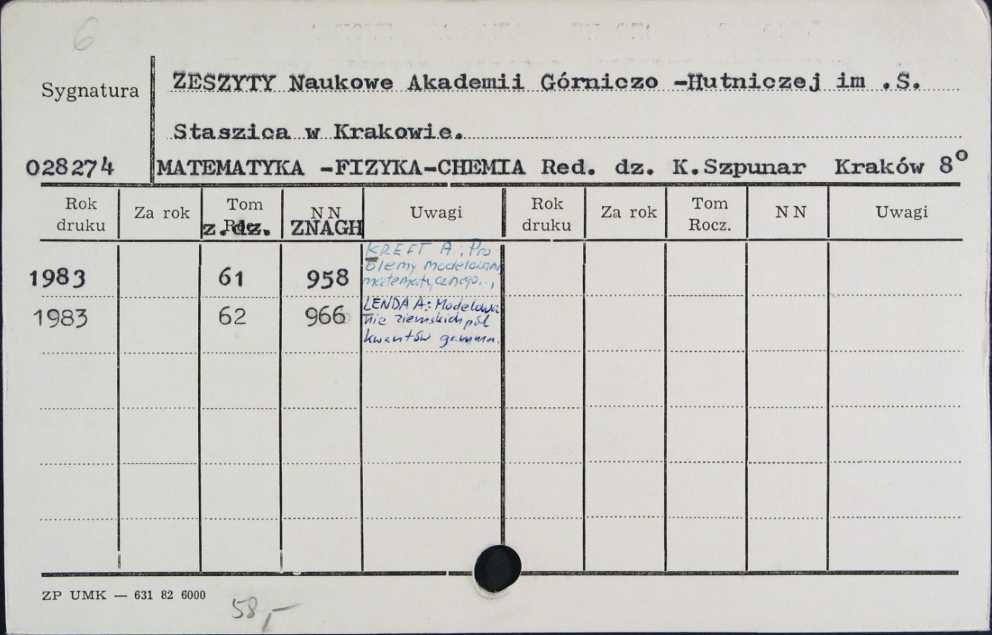 6
Sygnatura
ZESZYTY Naukowe Akademii Górniczo -Hutniczej im .S.
Staszica w Krakowie.
028274 MATEMATYKA -FIZYKA-CHEMIA Red. dz. K.Szpunar Kraków 8°
Rok druku Za rok Tom Rocz. NN Uwagi Rok druku Za rok Tom Rocz. NN Uwagi
z.dz. ZNAGH
1983 61 958 KREFT A. Pro
blemy modelowania
matematycznego..,
1983 62 966 LENDA A: Modelowa
nie ziemskich pól
kwantów gamma.
ZP UMK — 631 82 6000
58,-